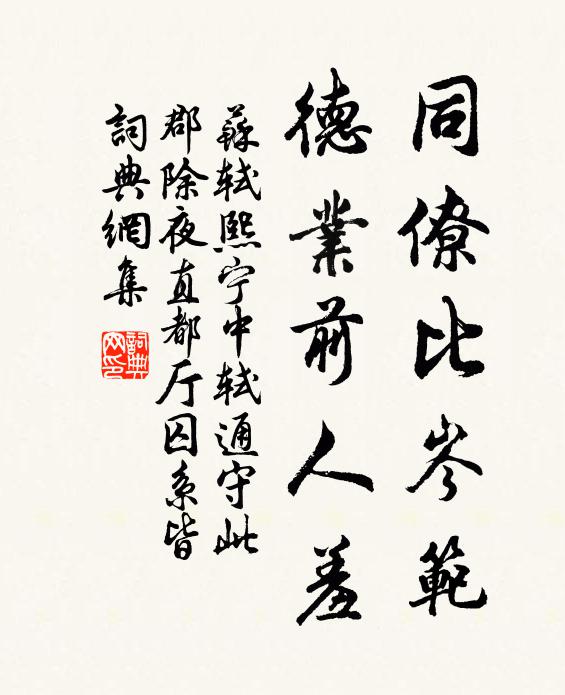 同僚比岑範
德業前人羞
蘇軾熙宁中軾通守此
郡除夜直都厅囚系皆
詞典網集
詞典网印